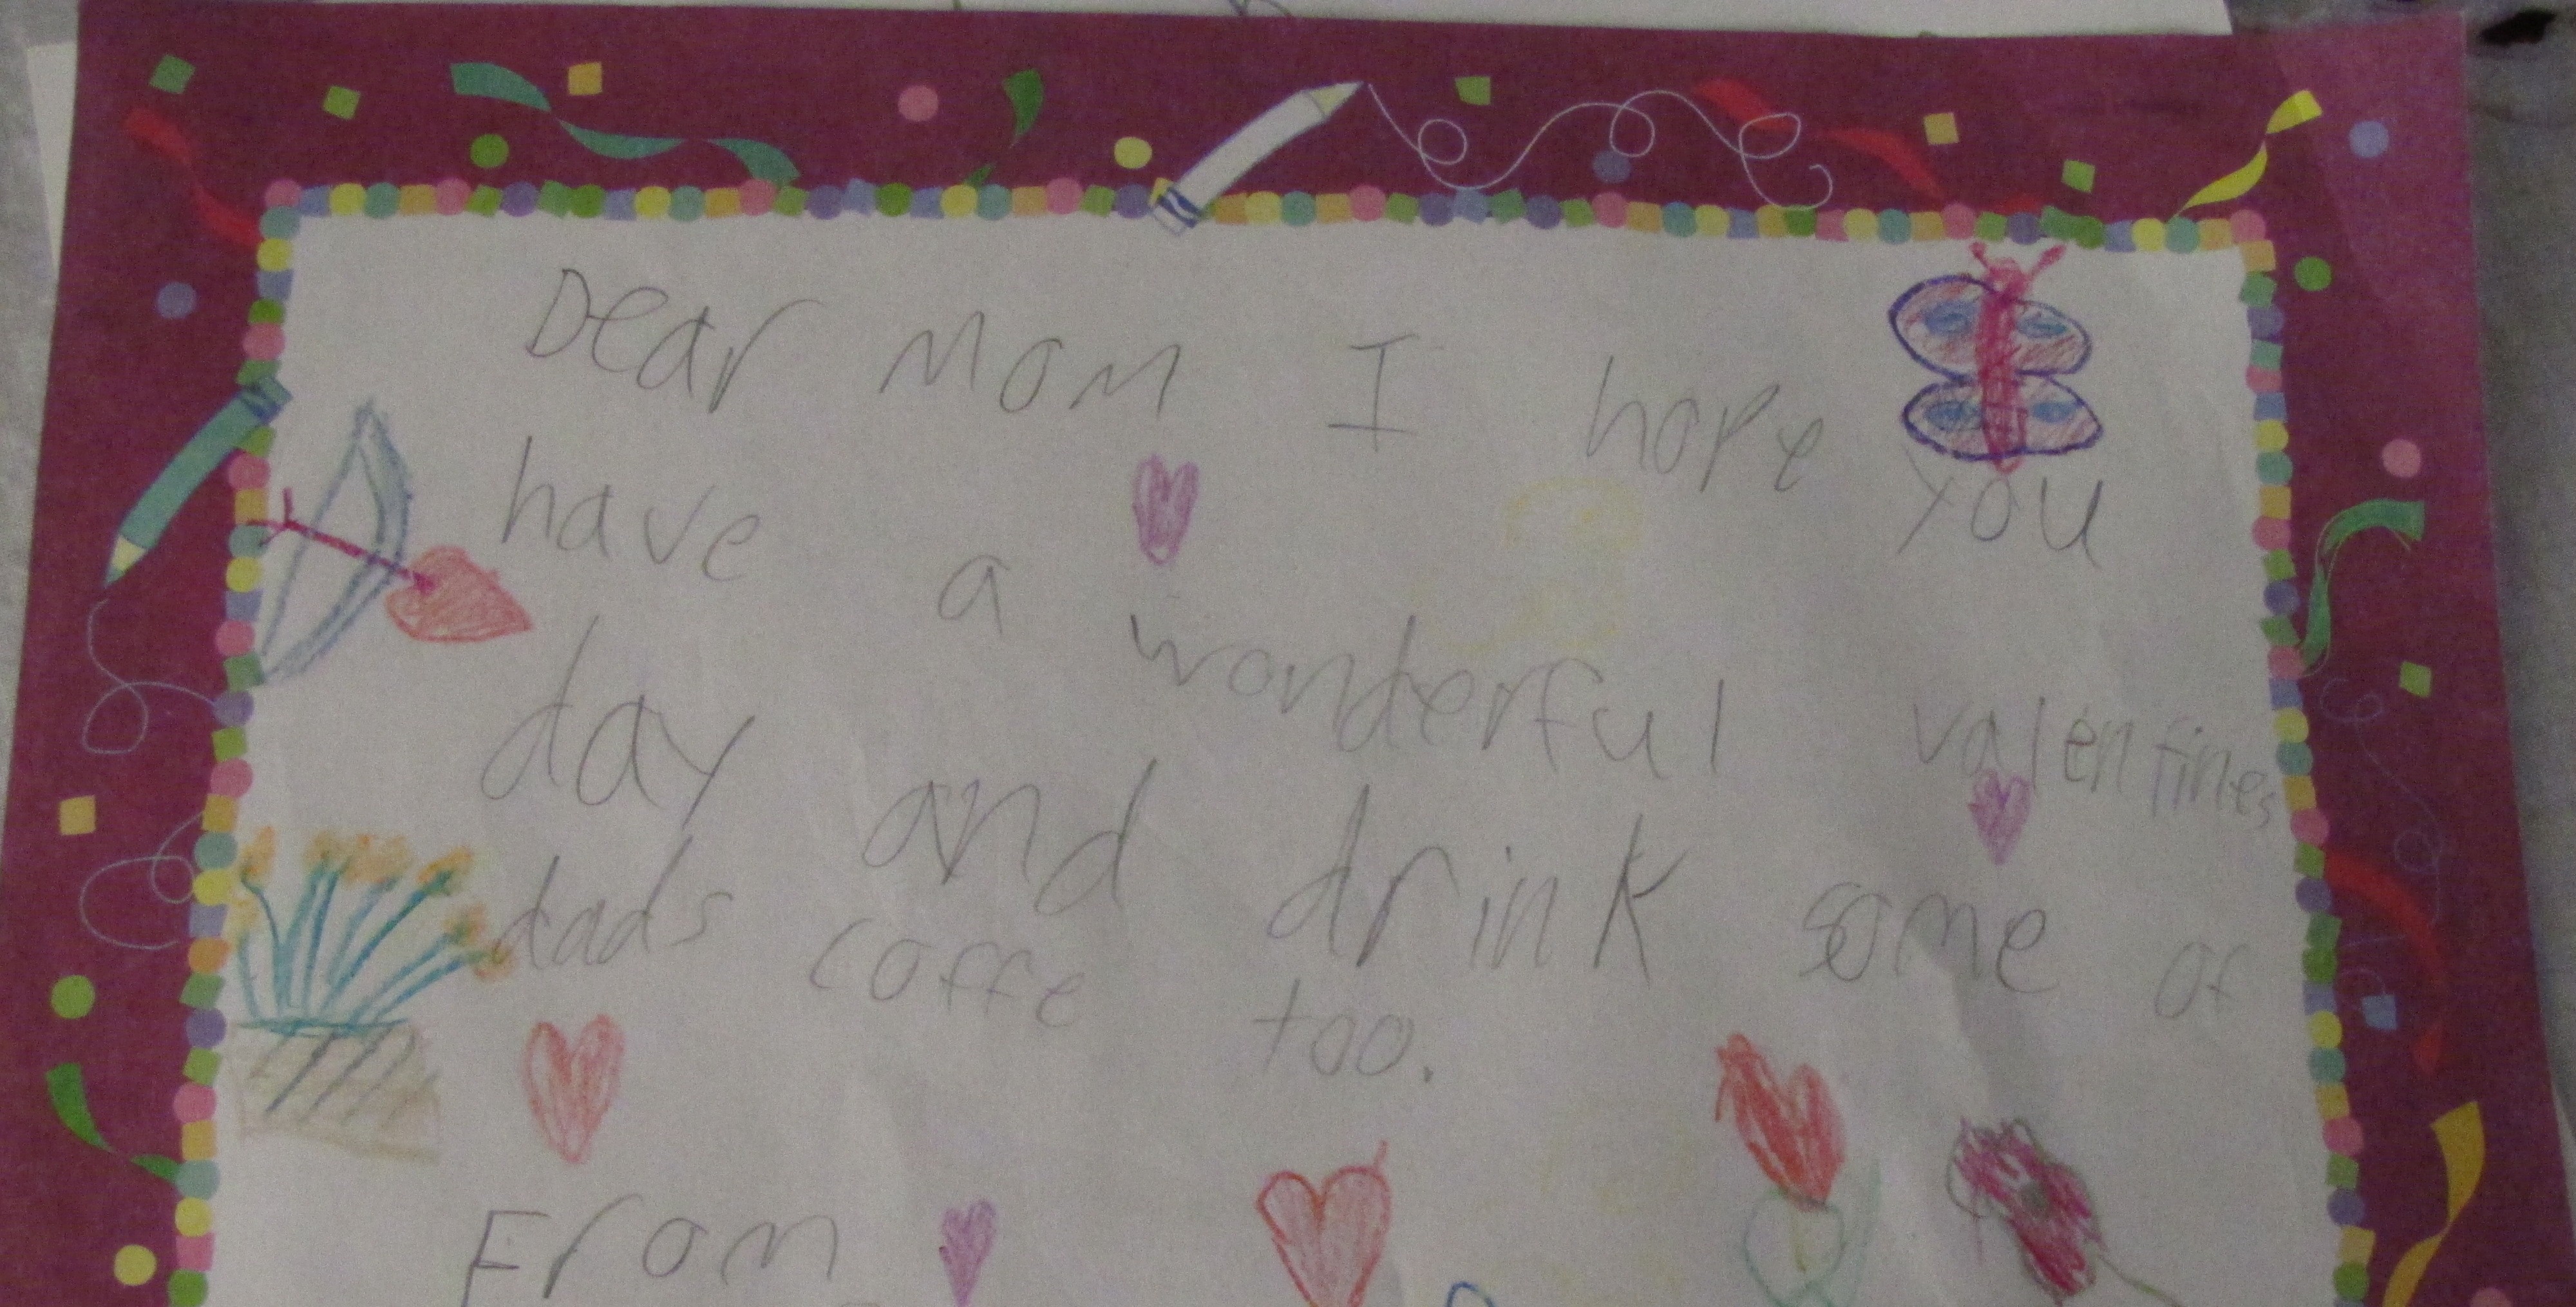 Dear Mom I hope you
have a wonderful valentines
day and drink some of
dads coffe too.
From